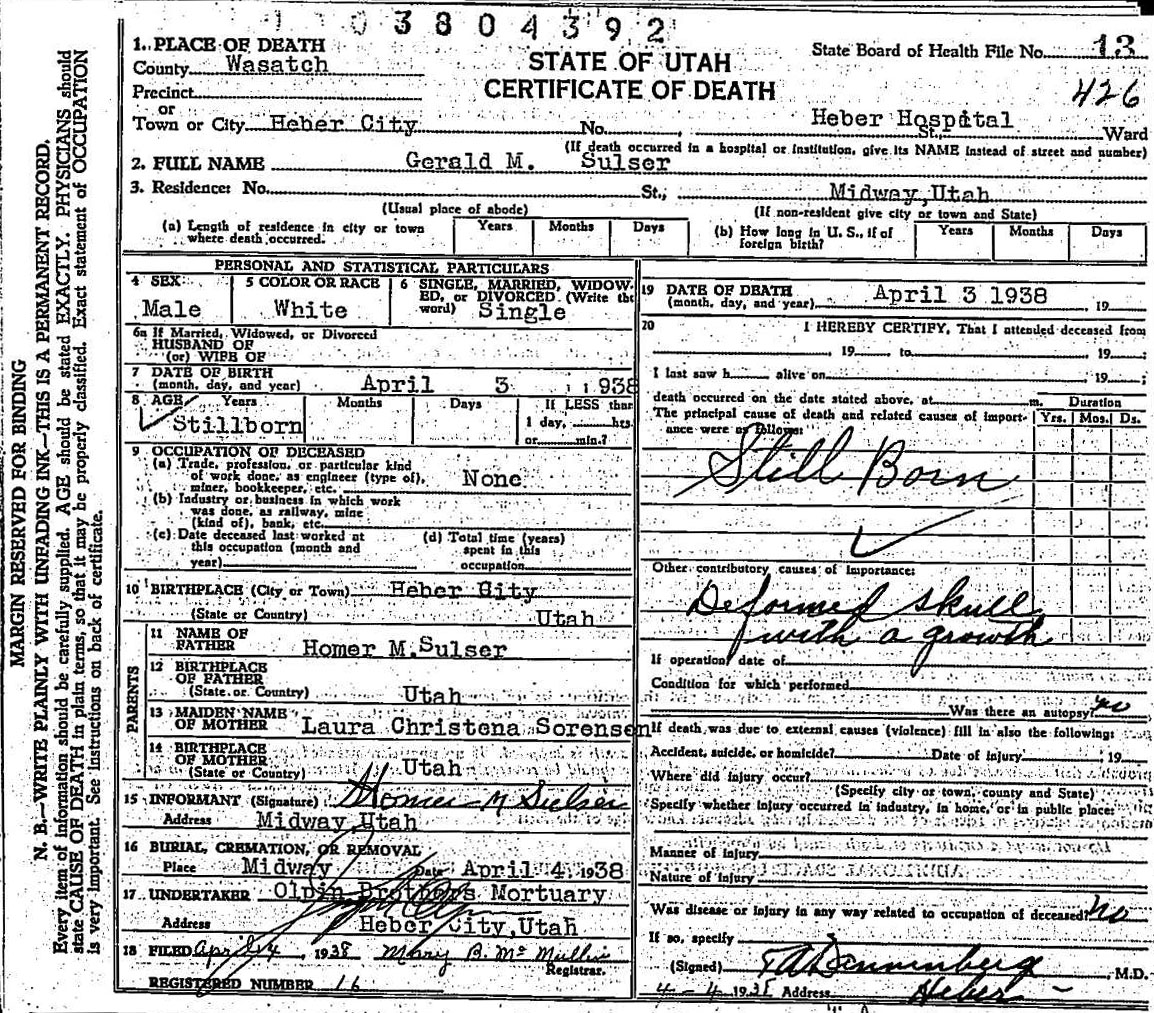 3804392
1. PLACE OF DEATH
County Wasatch
STATE OF UTAH
CERTIFICATE OF DEATH
State Board of Health File No. 13
426
Precinct
or
Town or City Heber City No. Heber Hospital St., Ward
(If death occurred in a hospital or institution, give its NAME instead of street and number)
2. FULL NAME Gerald M. Sulser
3. Residence: No. St., Midway, Utah
(Usual place of abode) (If non-resident give city or town and State)
(a) Length of residence in city or town where death occurred. Years Months Days
(b) How long in U. S., if of foreign birth? Years Months Days
PERSONAL AND STATISTICAL PARTICULARS
4 SEX Male
5 COLOR OR RACE White
6 SINGLE, MARRIED, WIDOWED, or DIVORCED (Write the word) Single
6a If Married, Widowed, or Divorced
HUSBAND OF
(or) WIFE OF
7 DATE OF BIRTH
(month, day, and year) April 3 1938
8 AGE Years Months Days If LESS than
Stillborn 1 day, hrs.
or min.?
9 OCCUPATION OF DECEASED
(a) Trade, profession, or particular kind
of work done, as engineer (type of),
miner, bookkeeper, etc. None
(b) Industry or business in which work
was done, as railway, mine
(kind of), bank, etc.
(c) Date deceased last worked at
this occupation (month and
year)
(d) Total time (years)
spent in this
occupation
10 BIRTHPLACE (City or Town) Heber City
(State or Country) Utah
PARENTS
11 NAME OF
FATHER Homer M. Sulser
12 BIRTHPLACE
OF FATHER
(State or Country) Utah
13 MAIDEN NAME
OF MOTHER Laura Christena Sorensen
14 BIRTHPLACE
OF MOTHER
(State or Country) Utah
15 INFORMANT (Signature) Homer M Sulser
Address Midway, Utah
16 BURIAL, CREMATION, OR REMOVAL
Place Midway Date April 4, 1938
17 UNDERTAKER Olpin Brothers Mortuary
Address Heber City, Utah
18 FILED April 4, 1938 Mary B. McMullin
Registrar.
REGISTERED NUMBER 16
19 DATE OF DEATH
(month, day, and year) April 3 1938 19
20 I HEREBY CERTIFY, That I attended deceased from
, 19 to , 19 ;
I last saw h alive on , 19 ;
death occurred on the date stated above, at m. Duration
The principal cause of death and related causes of importance were as follows: Yrs. Mos. Ds.
Still Born
Other contributory causes of importance:
Deformed skull
with a growth
If operation, date of
Condition for which performed
Was there an autopsy? no
If death was due to external causes (violence) fill in also the following:
Accident, suicide, or homicide? Date of injury , 19
Where did injury occur?
(Specify city or town, county and State)
Specify whether injury occurred in industry, in home, or in public place:
Manner of injury
Nature of injury
Was disease or injury in any way related to occupation of deceased? no
If so, specify
(Signed) TA Dannenberg, M.D.
4-4 1938 Address Heber
MARGIN RESERVED FOR BINDING
N. B.—WRITE PLAINLY WITH UNFADING INK—THIS IS A PERMANENT RECORD.
Every item of information should be carefully supplied. AGE should be stated EXACTLY. PHYSICIANS should
state CAUSE OF DEATH in plain terms, so that it may be properly classified. Exact statement of OCCUPATION
is very important. See instructions on back of certificate.